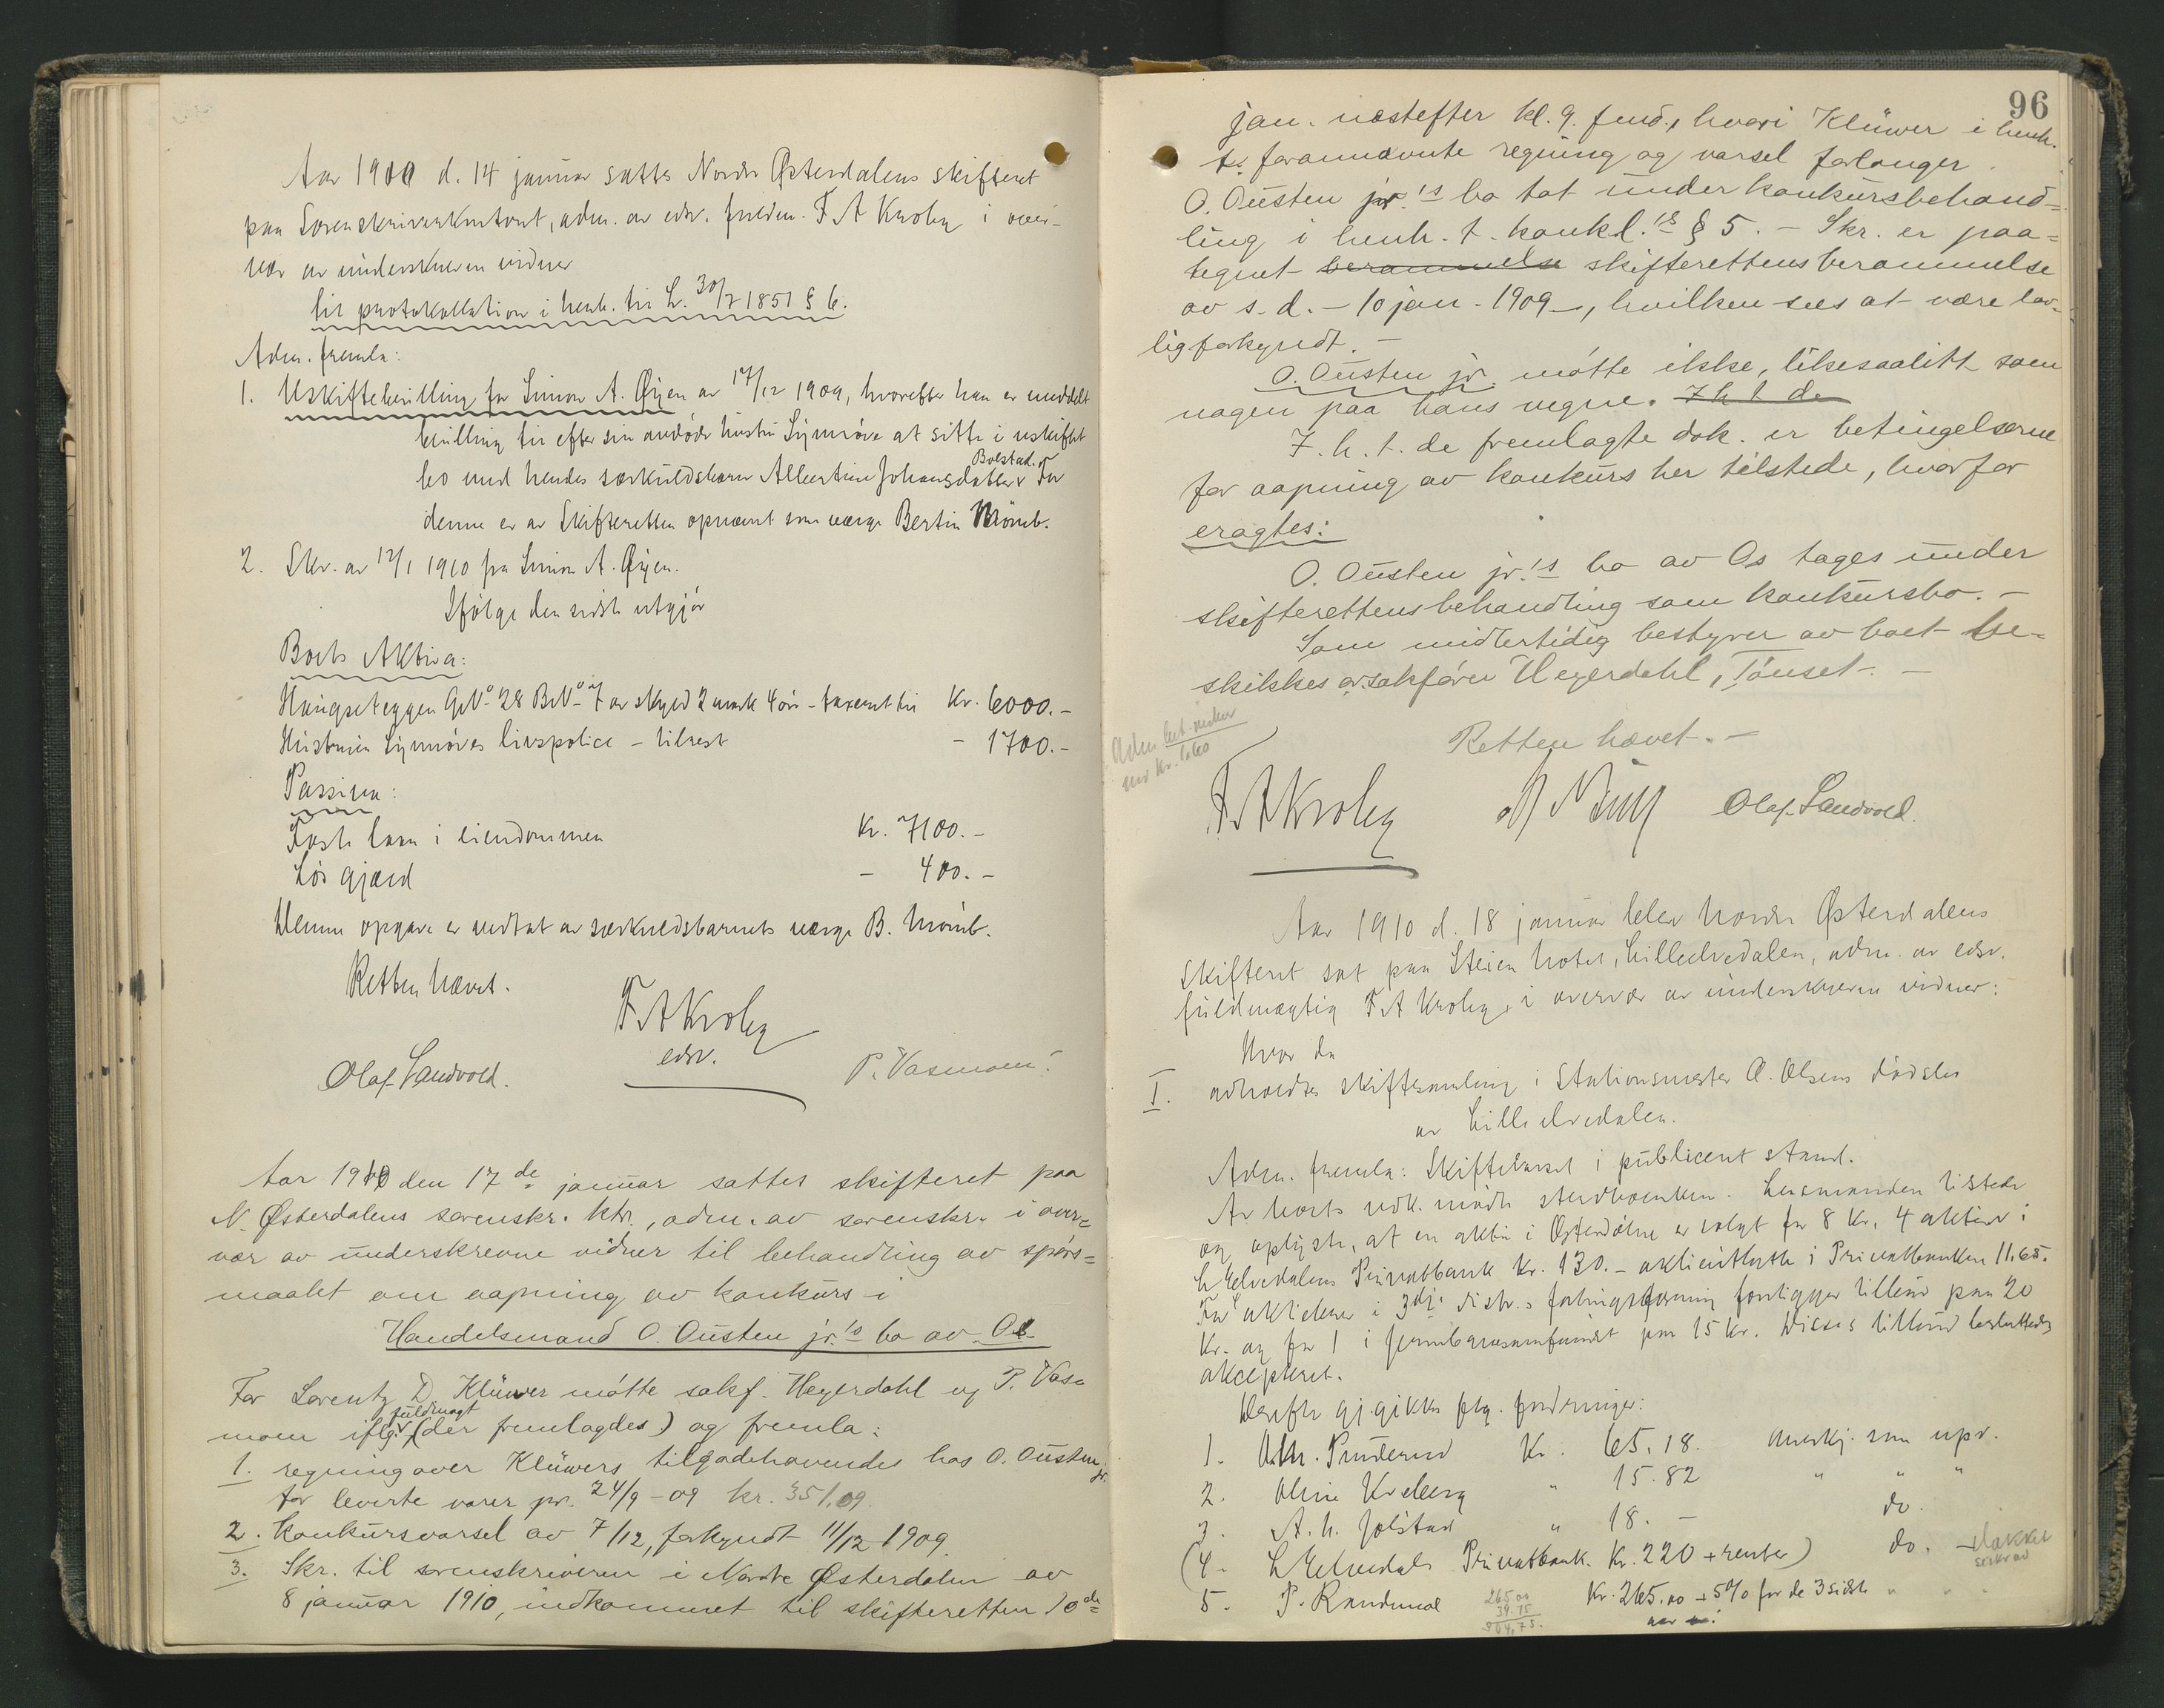 Aar 1910 d. 14 januar sattes Nordr Østerdalens skifteret
paa Sorenskriverkontoret, adm. av edsv. fuldm. F A Krohg i over-
vær av underskrevne vidner
til protokollation i henh. til L. 30/7 1851 § 6.
Adm. fremla:
1. Uskiftebevilling for Simon A. Øyen av 17/12 1909, hvorefter han er meddelt
bevilling til efter sin avdøde hustru Synnöve at sitte i uskiftet
bo med hendes særkuldsbarn Albertine Johansdatter Bolstad. For
denne er av Skifteretten opnævnt som værge Bertin Mömb.
2. Skr. av 12/1 1910 fra Simon A. Øyen.
Ifölge den sidste utgjör
Boets Aktiva:
Haugseteggen GNo 28 BNo 7 av skyld 2 mark 4 öre - taxeret til Kr. 6000.-
Hustruen Synnöves livspolice - tilrest - 1700.-
Passiva:
Faste laan i eiendommen Kr. 7100.-
Lös gjæld - 400.-
Denne opgave er vedtat av særkuldsbarnets værge B. Mömb.
Retten hævet.
F A Krohg
edsv.
Olaf Sandvold. P. Vasmoen.
Aar 1910 den 17de januar sattes skifteret paa
N. Østerdalens sorenskr. ktr., adm. av sorenskr. i over=
vær av underskrevne vidner til behandling av spörs=
maalet om aapning av konkurs i
Handelsmand O. Ousten jr.'s bo av Os
For Lorentz D. Klüwer mötte sakf. Heyerdahl og P. Vas-
moen iflg. fuldmagt (der fremlagdes) og fremla:
1. regning over Klüwers tilgodehavendes hos O. Ousten jr.
for leverte varer pr. 24/9 - 09 kr. 351.09.
2. Konkursvarsel av 7/12, forkyndt 11/12 1909.
3. Skr. til sorenskriveren i Nordre Østerdalen av
8 januar 1910, indkommet til skifteretten 10de
96
jan. næstefter kl. 9. fmd., hvori Klüwer i henh.
t. forannævnte regning og varsel forlanger
O. Ousten jr.'s bo tat under konkursbehand=
ling i henh. t. konkl.'s § 5. - Skr. er paa=
tegnet berammelse skifterettens berammelse
av s. d. - 10 jan - 1909 -, hvilken sees at være lov-
lig forkyndt. -
O. Ousten jr. mötte ikke, likesaalitt som
nogen paa hans vegne. I h t de
I. h. t. de fremlagte dok. er betingelserne
for aapning av konkurs her tilstede, hvorfor
eragtes:
O. Ousten jr.'s bo av Os tages under
skifterettens behandling som konkursbo. -
Som midlertidig bestyrer av boet be-
skikkes o.r.sakförer Heyerdahl, Tönset. -
Retten hævet. -
F A Krohg Olaf Sandvold.
Aar 1910 d. 18 januar blev Nordr Østerdalens
Skifteret sat paa Steien Hotel, Lilleelvedalen, adm. av edsv.
fuldmægtig F A Krohg i overvær av underskrevne vidner:
Hvor da
I. avholdtes skiftesamling i Stationsmester A. Olsens dödsbo
av Lilleelvedalen.
Adm. fremla: Skiftevarsel i publicert stand.
Lensmanden tilstede
og oplyste, at en aktie i Østerdölen er solgt for 8 Kr., 4 aktier i
L Elvedalens Privatbank Kr. 130. - aktieutbytte i Privatbanken 11.65.
Kr. og for 1 i paa 15 Kr. Disse tilbud besluttedes
akcepteret.
Derefter gj.gikkes flg. fordringer:
1. Kr. 65.18. Anerkj. som upr.
2. Oline Kveberg " 15.82 " " "
3. A. H. Jolstad " 18. - do.
(4. L Elvedals Privatbank. Kr. 220 + renter) do. -
5. P. Randmæl Kr. 265.00 + 5% for de 3 sidste " " "
aar
265.00
39.75
304,75.